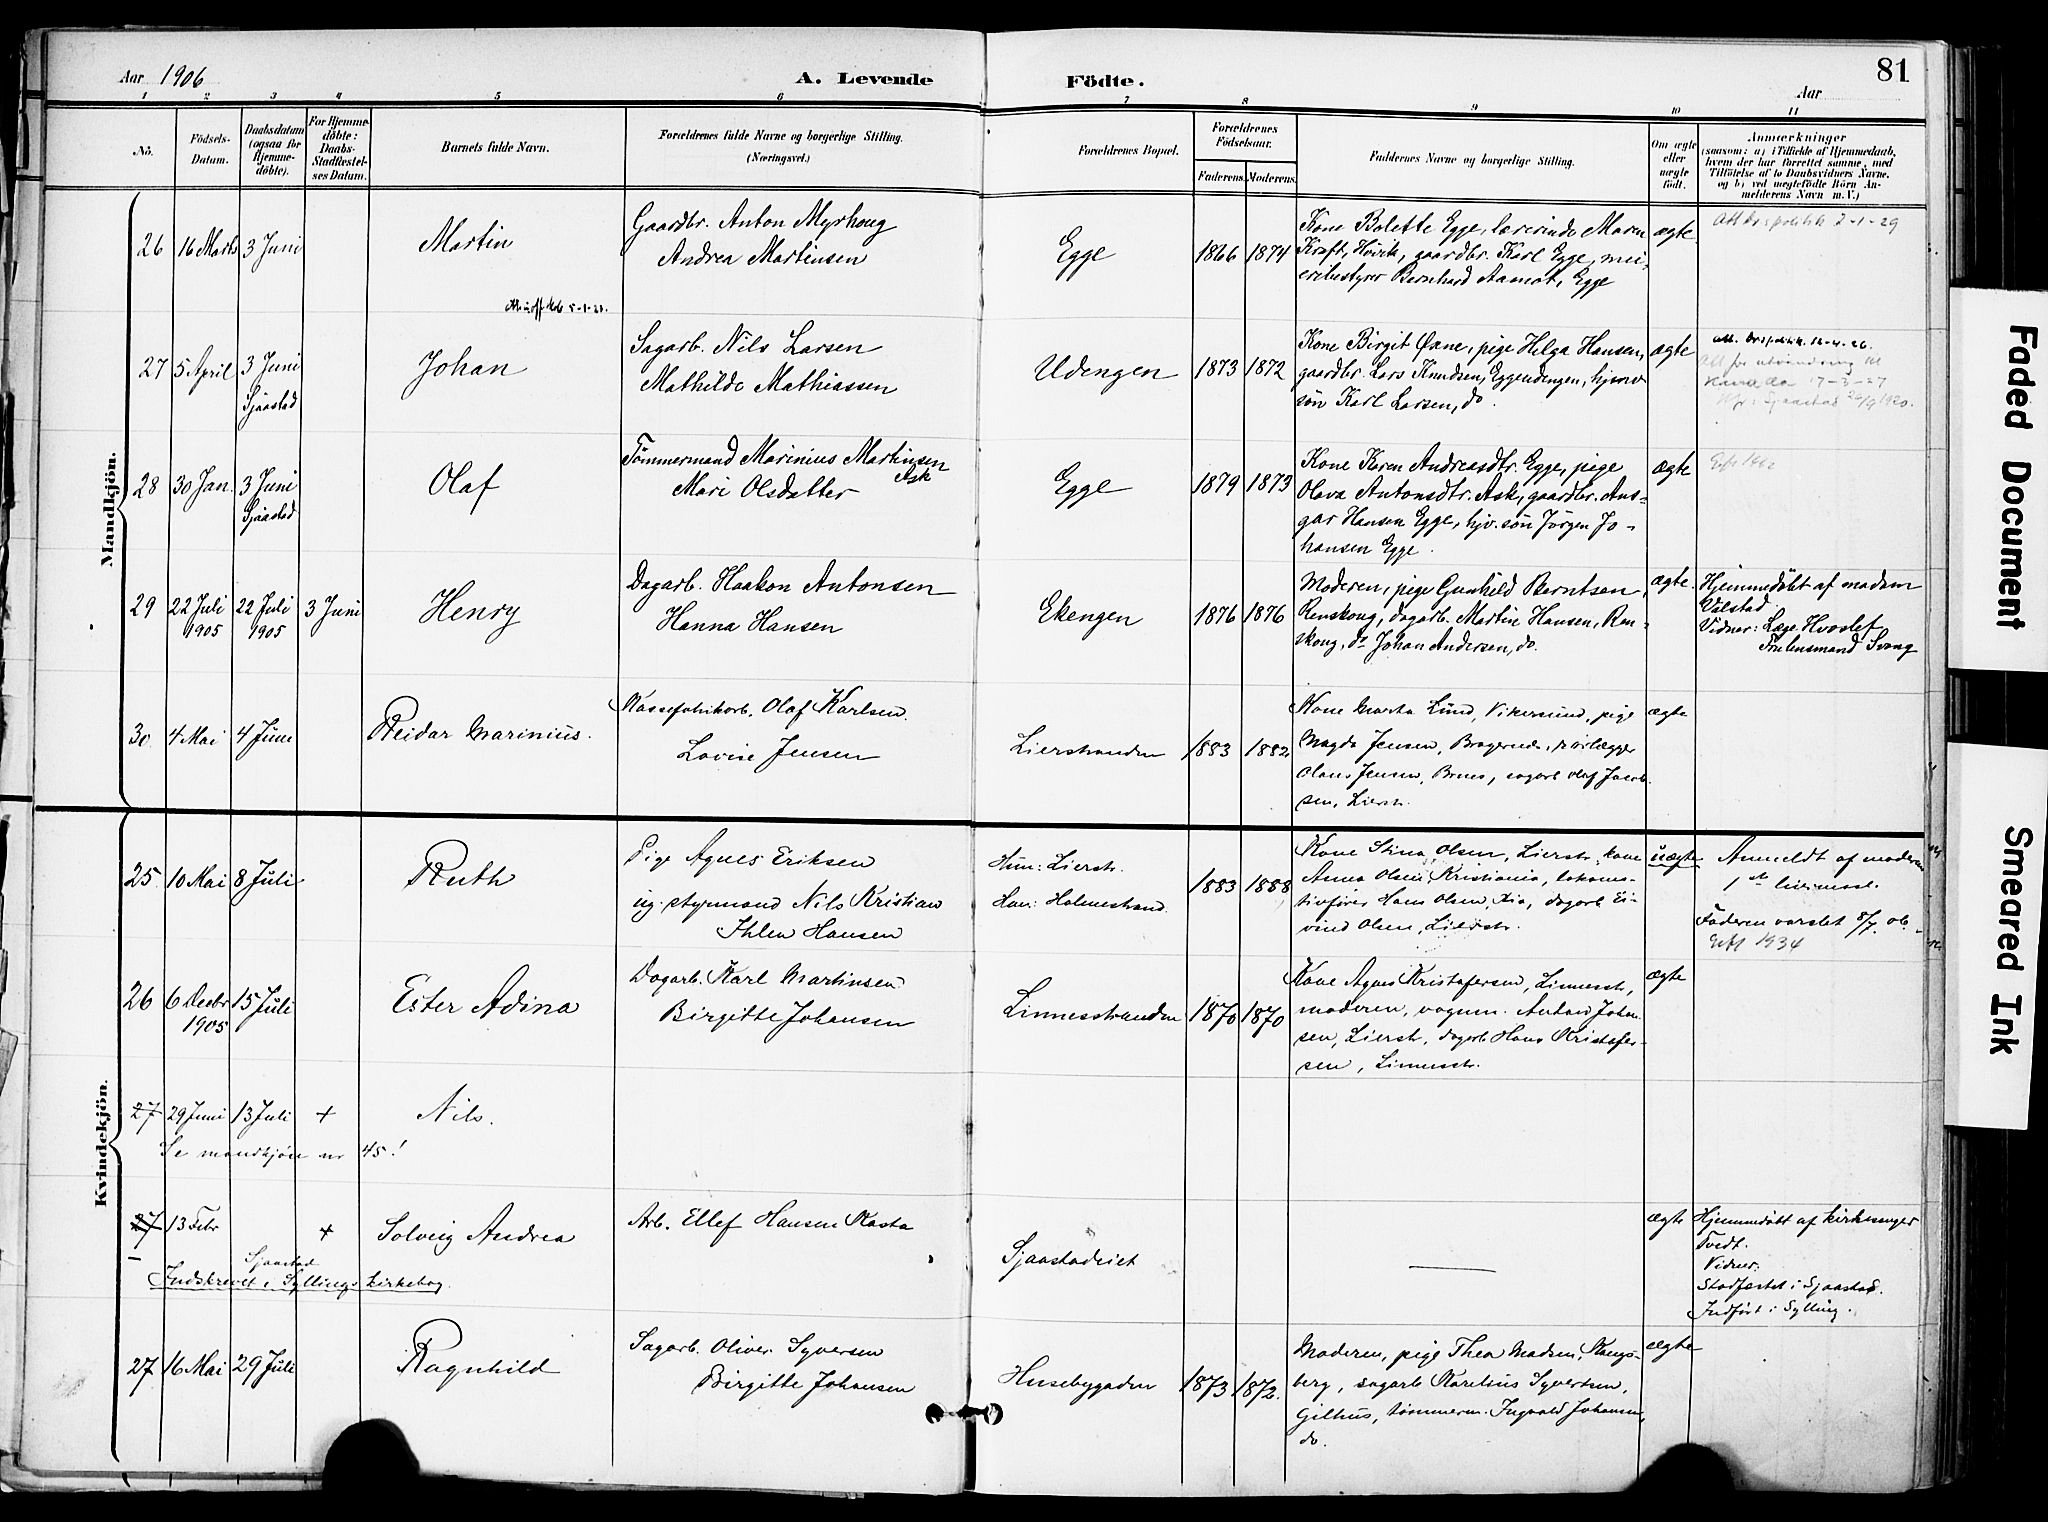 Aar 1906
A. Levende Födte.
81
Aar
1 2 3 4 5 6 7 8 9 10 11
No.
Födsels-
Datum.
Daabsdatum
(ogsaa for
Hjemme-
døbte).
For Hjemme-
døbte:
Daabs-
Stadfæstel-
ses Datum.
Barnets fulde Navn.
Forældrenes fulde Navne og borgerlige Stilling.
(Næringsvei.)
Forældrenes Bopæl.
Forældrenes
Fødselsaar.
Faderens. Moderens.
Faddernes Navne og borgerlige Stilling.
Om ægte
eller
uægte
født.
Anmærkninger
(saasom: a) i Tilfælde af Hjemmedaab,
hvem der har forrettet samme, med
Tilføielse af to Daabsvidners Navne,
og b) ved uægtefødte Börn An-
melderens Navn m. V.)
Mandkjön.
26 16 Marts 3 Juni
Martin
Gaardbr. Anton Myrhoug
Andrea Martinsen
Egge
1866 1874
Kone Bolette Egge, lærerinde Maren
Kraft, Høvik, gaardbr. Karl Egge, mei-
eribestyrer Bernhard Aamot, Egge
ægte
2-1-29
27 5 April 3 Juni
Sjaastad
Johan
Sagarb. Nils Larsen
Mathilde Mathiassen
Udengen
1873 1872
Kone Birgit Øxne, pige Helga Hansen,
gaardbr. Lars Knudsen, Eggeudengen, hjemv.
søn Karl Larsen, do
ægte
Att. for utvandring til
Kanada 17-3-27
28 30 Jan. 3 Juni
Sjaastad
Olaf
Tømmermand Marinius Martinsen
Ask
Mari Olsdatter
Egge
1879 1873
Kone Karen Andreasdtr. Egge, pige
Olava Antonsdtr. Ask, gaardbr. Ans-
gar Hansen Egge, hjv. søn Jørgen Jo-
hansen Egge.
ægte
29 22 Juli 22 Juli 3 Juni
1905 1905
Henry
Dagarb. Haakon Antonsen
Hanna Hansen
Ekengen
1876 1876
Moderen, pige Gunhild Berntsen,
Renskoug, dagarb. Martin Hansen, Ren-
skoug, do Johan Andersen, do.
ægte.
Hjemmedøbt af madam
Vilstad.
Vidner: Læge Hvoslef
Fru lensmand Svang
30 4 Mai 4 Juni
Reidar Marinius.
Kassefabrikarb. Olaf Karlsen.
Lovise Jensen
Lierstranden
1883 1882
Kone Marta Lund, Vikersund, pige
Magda Jensen, Bragernes, rørlægger
Olaus Jensen, Brnes, sagarb Olaf Jacob-
sen, Lierstr.
ægte
Kvindekjön.
25 10 Mai 8 Juli
Ruth
Pige Agnes Eriksen
ug. styrmand Nils Kristian
Ihlen Hansen
Hun: Lierstr.
Han: Holmestrand.
1883 1888
Kone Stina Olsen, Lierstr, kone
Anna Olsen, Kristiania, lokomo-
tivfører Hans Olsen, Kra, dagarb Ei-
vind Olsen, Lierstr.
uægte
Anmeldt af moderen
Faderen varslet 8/7. 06.
Gift 1934
26 6 Decbr 15 Juli
1905
Ester Adina
Dagarb. Karl Martinsen
Birgitte Johansen
Linnesstranden
1870 1870
Kone Agnes Kristofersen, Linnesstr,
moderen, vognm. Anton Johan-
sen, Lierstr, dagarb Hans Kristofer-
sen, Linnesstr.
ægte
27 29 Juni 13 Juli +
Nils.
Se mandkjøn nr 45!
27 13 Febr +
Solveig Andrea
Sjaastad
Indskrevet i Syllings kirkebog.
Arb. Ellef Hansen Kasta
Sjaastadeiet
ægte
Hjemmedøbt af kirkesanger
Tvedt.
Vidner:
Stadfæstet i Sjaastad.
Indført i Sylling.
27 16 Mai 29 Juli
Ragnhild
Sagarb. Oliver Syversen
Birgitte Johansen
Husebygaden
1873 1872.
Moderen, pige Thea Madsen, Kongs-
berg, sagarb Karelius Syvertsen,
Gilhus, tømmerm. Ingvald Johansen,
do.
ægte
Faded Document
Smeared Ink